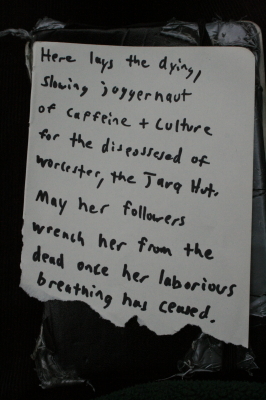 Here lays the dying,
slowing joggernaut
of caffeine + Culture
for the disposessed of
worcester, the Java Hut.
May her followers
wrench her from the
dead once her laborious
breathing has ceased.